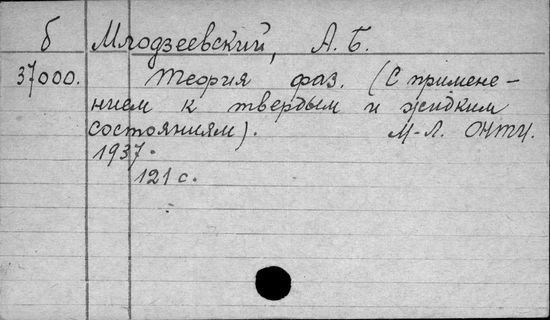 б Млодзеевский, А. Б.
37000. Теория фаз. (С примене-
нием к твердым и жидким
состояниям). М-Л. ОНТИ.
1937.
121 с.